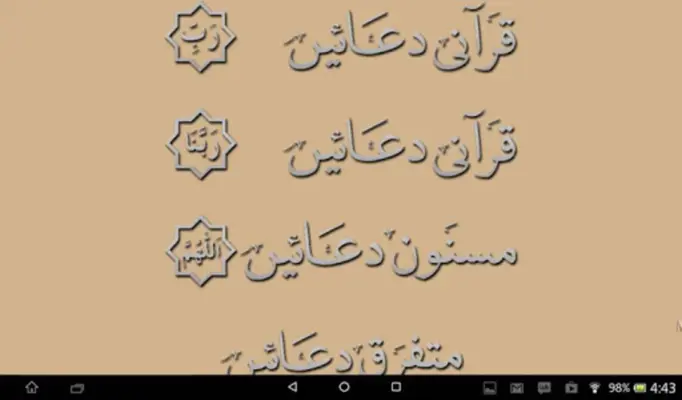 قرآنی دعائیں رَبِّ
قرآنی دعائیں رَبَّنَا
مسنون دعائیں اَللّٰهُمَّ
متفرق دعائیں
98% 4:43